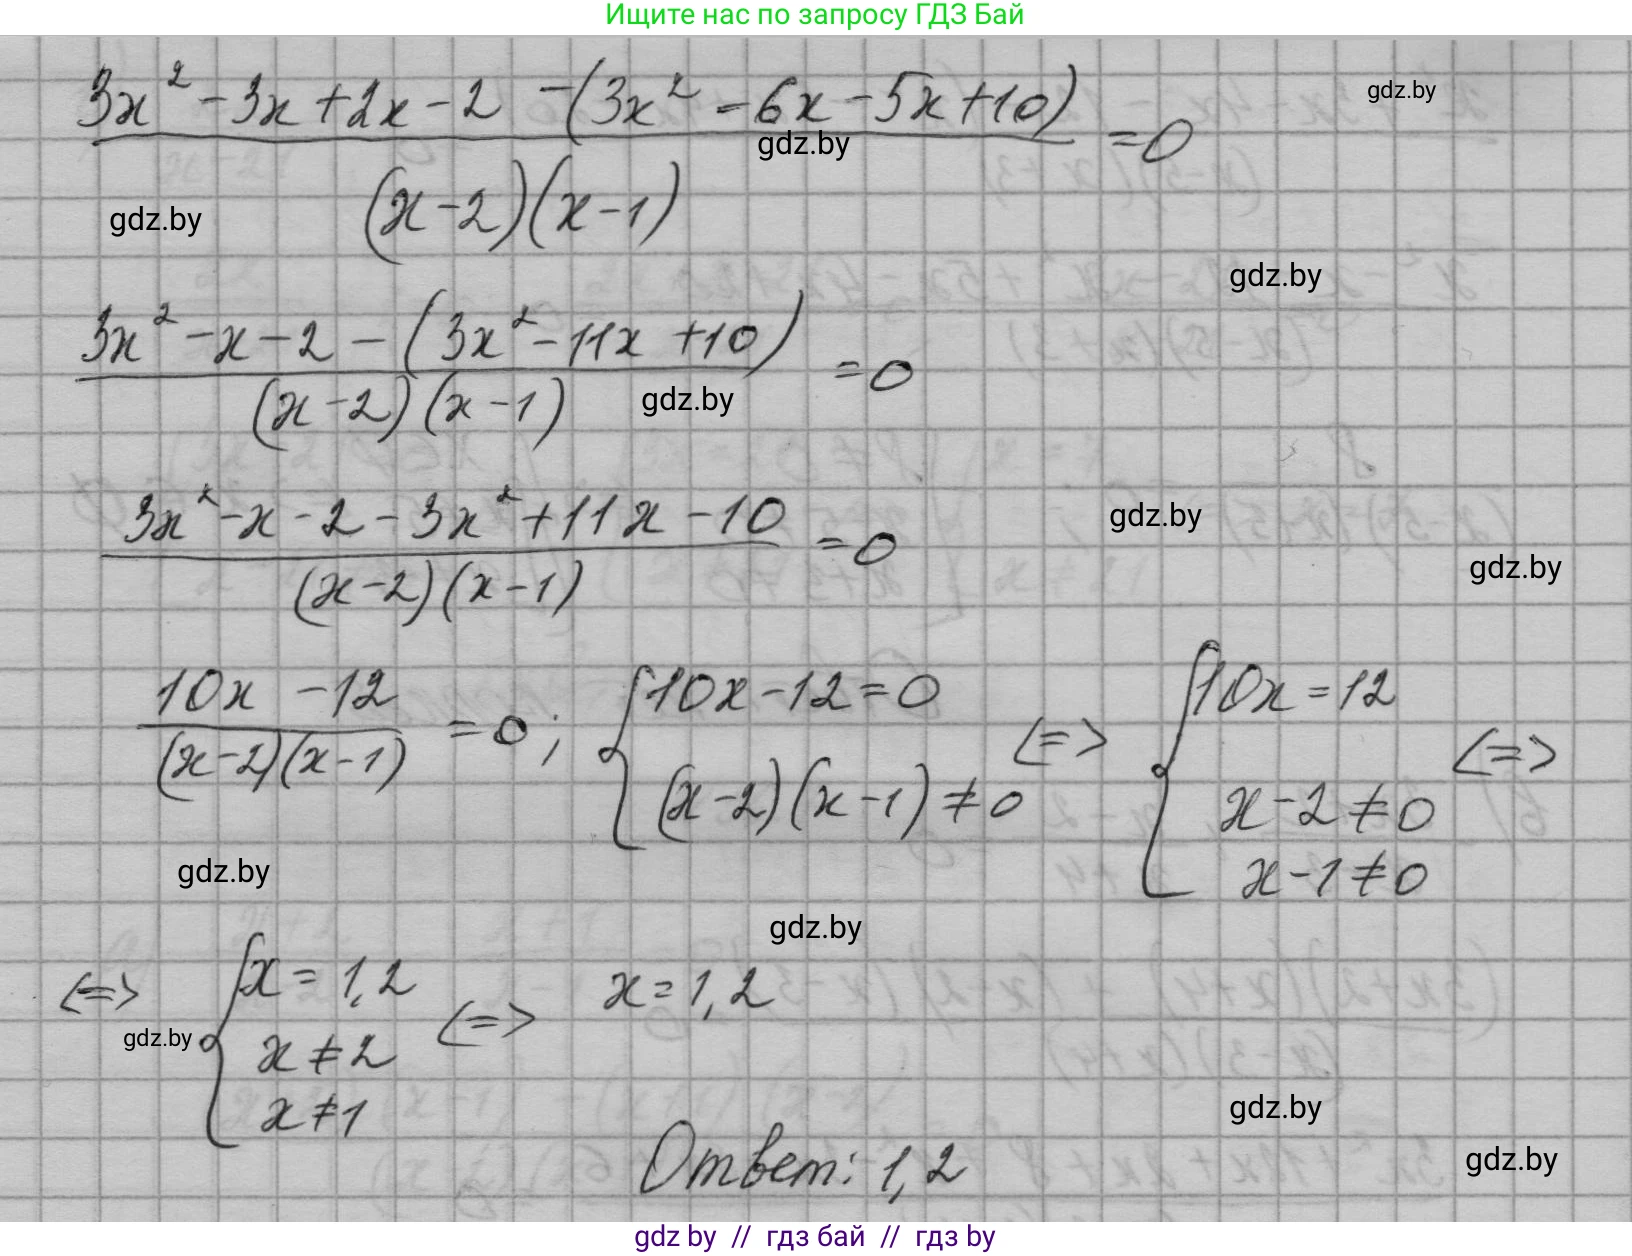 Ищите нас по запросу ГДЗ Бай
3x² - 3x + 2x - 2 - (3x² - 6x - 5x + 10)
gdz.by
= 0
gdz.by
(x - 2)(x - 1)
gdz.by
gdz.by
3x² - x - 2 - (3x² - 11x + 10)
= 0
(x - 2)(x - 1)
gdz.by
3x² - x - 2 - 3x² + 11x - 10
= 0
gdz.by
(x - 2)(x - 1)
gdz.by
10x - 12
(x - 2)(x - 1)
= 0;
{ 10x - 12 = 0
(x - 2)(x - 1) ≠ 0
<=>
{ 10x = 12
x - 2 ≠ 0
x - 1 ≠ 0
<=>
gdz.by
gdz.by
<=>
{ x = 1,2
x ≠ 2
x ≠ 1
<=> x = 1,2
gdz.by
gdz.by
Ответ: 1,2
gdz.by
gdz by // гдз бай // гдз by